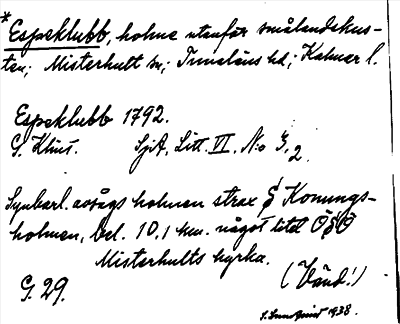 *Espeklubb, holme utanför smålandskus-
ten; Misterhult sn; Tunaläns hd; Kalmar l.
Espeklubb 1792.
G. Klint. SjA, Litt. VI. No 3,2
Synbarl. avsågs holmen strax S Konungs-
holmen, bel. 10,1 km. något litet ÖSÖ
Misterhults kyrka.
G. 29. (Vänd!)
1938.